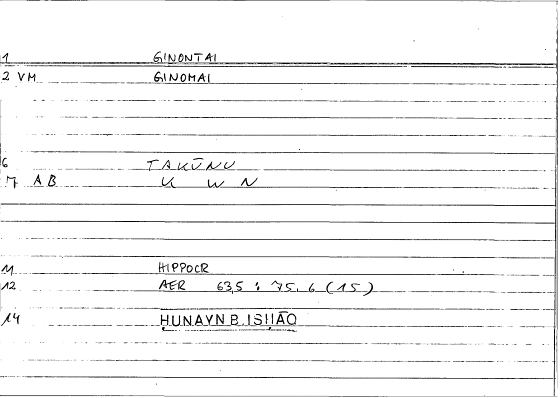 1 GINONTAI
2 VM GINOMAI
6 TAKŪNU
7 AB K W N
11 HIPPOCR
12 AER 63,5 : 75.6 (15)
14 ḤUNAYN B. ISḤĀQ